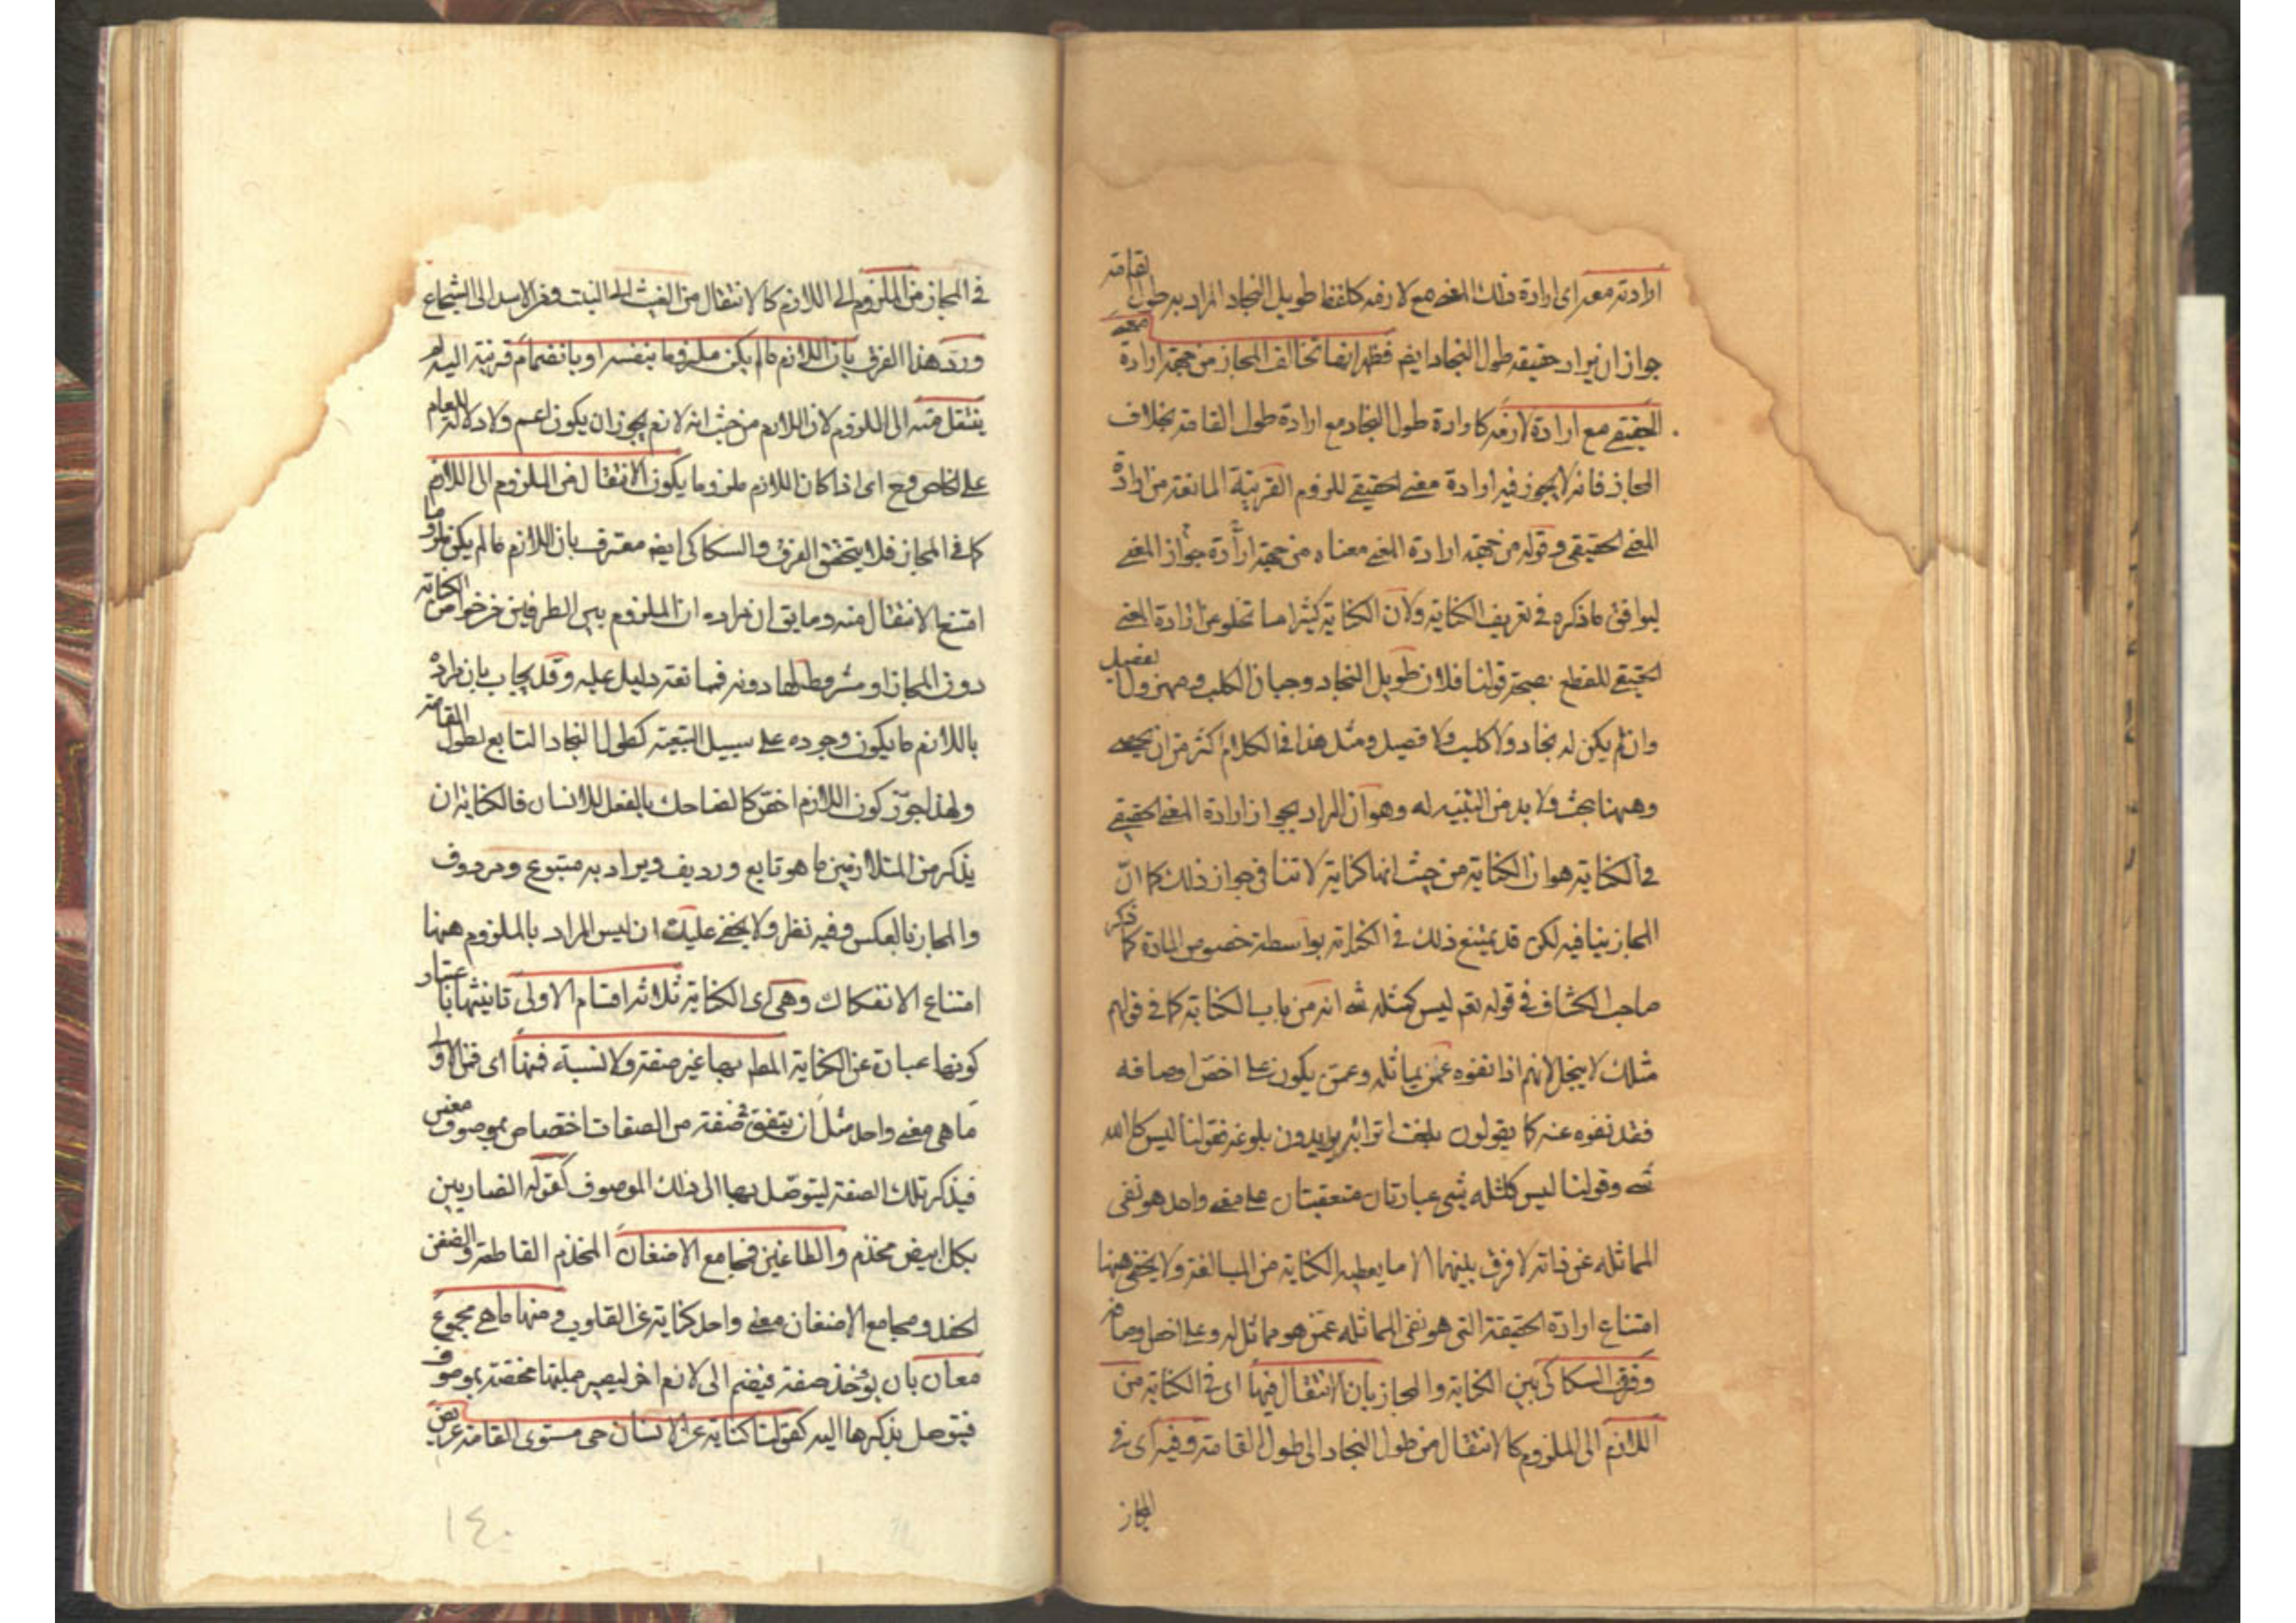 ارادته معه اى ارادة ذلك المعنى مع لازمه كلفظ طويل النجاد المراد به طول القامة
جواز ان يراد حقيقة طول النجاد ايضا فظهر انها تخالف المجاز من جهة ارادة المعنى
الحقيقى مع ارادة لازمه كارادة طول النجاد مع ارادة طول القامة بخلاف
المجاز فانه لا يجوز فيه ارادة معنى الحقيقى للزوم القرينة المانعة من ارادة
المعنى الحقيقى وقوله من جهة ارادة المعنى معناه من جهة ارادة جواز المعنى
ليوافق ما ذكره فى تعريف الكناية ولان الكناية كثيرا ما تخلو عن ارادة المعنى
الحقيقى للقطع بصحة قولنا فلان طويل النجاد وجبان الكلب ومهزول الفصيل
وان لم يكن له نجاد ولا كلب ولا فصيل ومثل هذا فى الكلام اكثر من ان يحصى
وههنا بحث ولا بد من التنبيه له وهو ان المراد بجواز ارادة المعنى الحقيقى
فى الكناية هو ان الكناية من حيث انها كناية لا تنافى جواز ذلك كما انّ
المجاز ينافيه لكن قد يمتنع ذلك فى الكناية بواسطة خصوص المادة كما ذكر
صاحب الكشاف فى قوله تعم ليس كمثله شئ انه من باب الكناية كما فى قولهم
مثلك لا يبخل لانهم اذا نفوه عمن يماثله وعمن يكون على اخصّ اوصافه
فقد نفوه عنه كما يقولون بلغت اترابه يريدون بلوغه فقولنا ليس كالله
شئ وقولنا ليس كمثله شئ عبارتان متعقبتان على معنى واحد هو نفى
المماثله عن ذاته لا فرق بينهما الا ما يعطيه الكناية من المبالغة ولا يخفى ههنا
امتناع ارادة الحقيقة التى هو نفى المماثله عمن هو مماثل له وعلى اخص اوصافه
وفرق السكاكى بين الكناية والمجاز بان الانتقال فيها اى فى الكناية من
اللازم الى الملزوم كالانتقال من طول النجاد الى طول القامة وفيه اى فى
المجاز
فى المجاز من الملزوم الى اللازم كالانتقال من الغيث الى النبت ومن الاسد الى الشجاع
وردّ هذا الفرق بان اللازم ما لم يكن ملزوما بنفسه او بانضمام قرينة اليه لم
ينتقل منه الى الملزوم لان اللازم من حيث انه لازم يجوز ان يكون اعم ولا دلالة للعام
على الخاص وح اى اذا كان اللازم ملزوما يكون الانتقال من الملزوم الى اللازم
كما فى المجاز فلا يتحقق الفرق والسكاكى ايضا معترف بان اللازم ما لم يكن ملزوما
امتنع الانتقال منه وما يق ان مراده ان الملزوم بين الطرفين من خواص الكناية
دون المجاز او مشروط لها دونه فمما نعته دليل عليه وقد يجاب بان مراده
باللازم ما يكون وجوده على سبيل التبعية كطول النجاد التابع لطول القامة
ولهذا جوّز كون اللازم اخصّ كالضاحك بالفعل للانسان فالكناية ان
يذكر من المتلازمين ما هو تابع ورديف ويراد به متبوع ومردوف
والمجاز بالعكس وفيه نظر ولا يخفى عليك ان ليس المراد بالملزوم ههنا
امتناع الانفكاك وهى اى الكناية ثلاثة اقسام الاولى تانيثها باعتبار
كونها عبارة عن الكناية المط بها غير صفة ولا نسبة فمنها اى فمن الاولى
ما هى معنى واحد مثل ان يتفق فى صفة من الصفات اختصاص بموصوف معين
فيذكر تلك الصفة ليتوصّل بها الى ذلك الموصوف كقوله الضاربين
بكل ابيض مخذم والطاعنين مجامع الاضغان المخذم القاطع والضغن
الحقد ومجامع الاضغان معنى واحد كناية عن القلوب ومنها ما هى مجموع
معان بان يؤخذ صفة فيضم الى لازم اخر ليصير جملتها مختصة بموصوف
فيتوصل بذكرها اليه كقولنا كناية عن الانسان حى مستوى القامة عريض
١٤٠